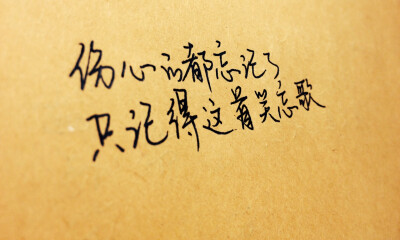 伤心的都忘记了
只记得这首笑忘歌